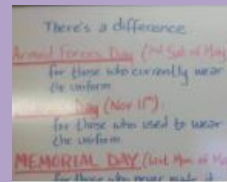 There's a difference
Armed Forces Day (3rd Sat of May)
for those who currently wear
the uniform
Day (Nov 11th)
for those who used to wear
the uniform
MEMORIAL DAY (last Mon. of Ma
for those who never made it